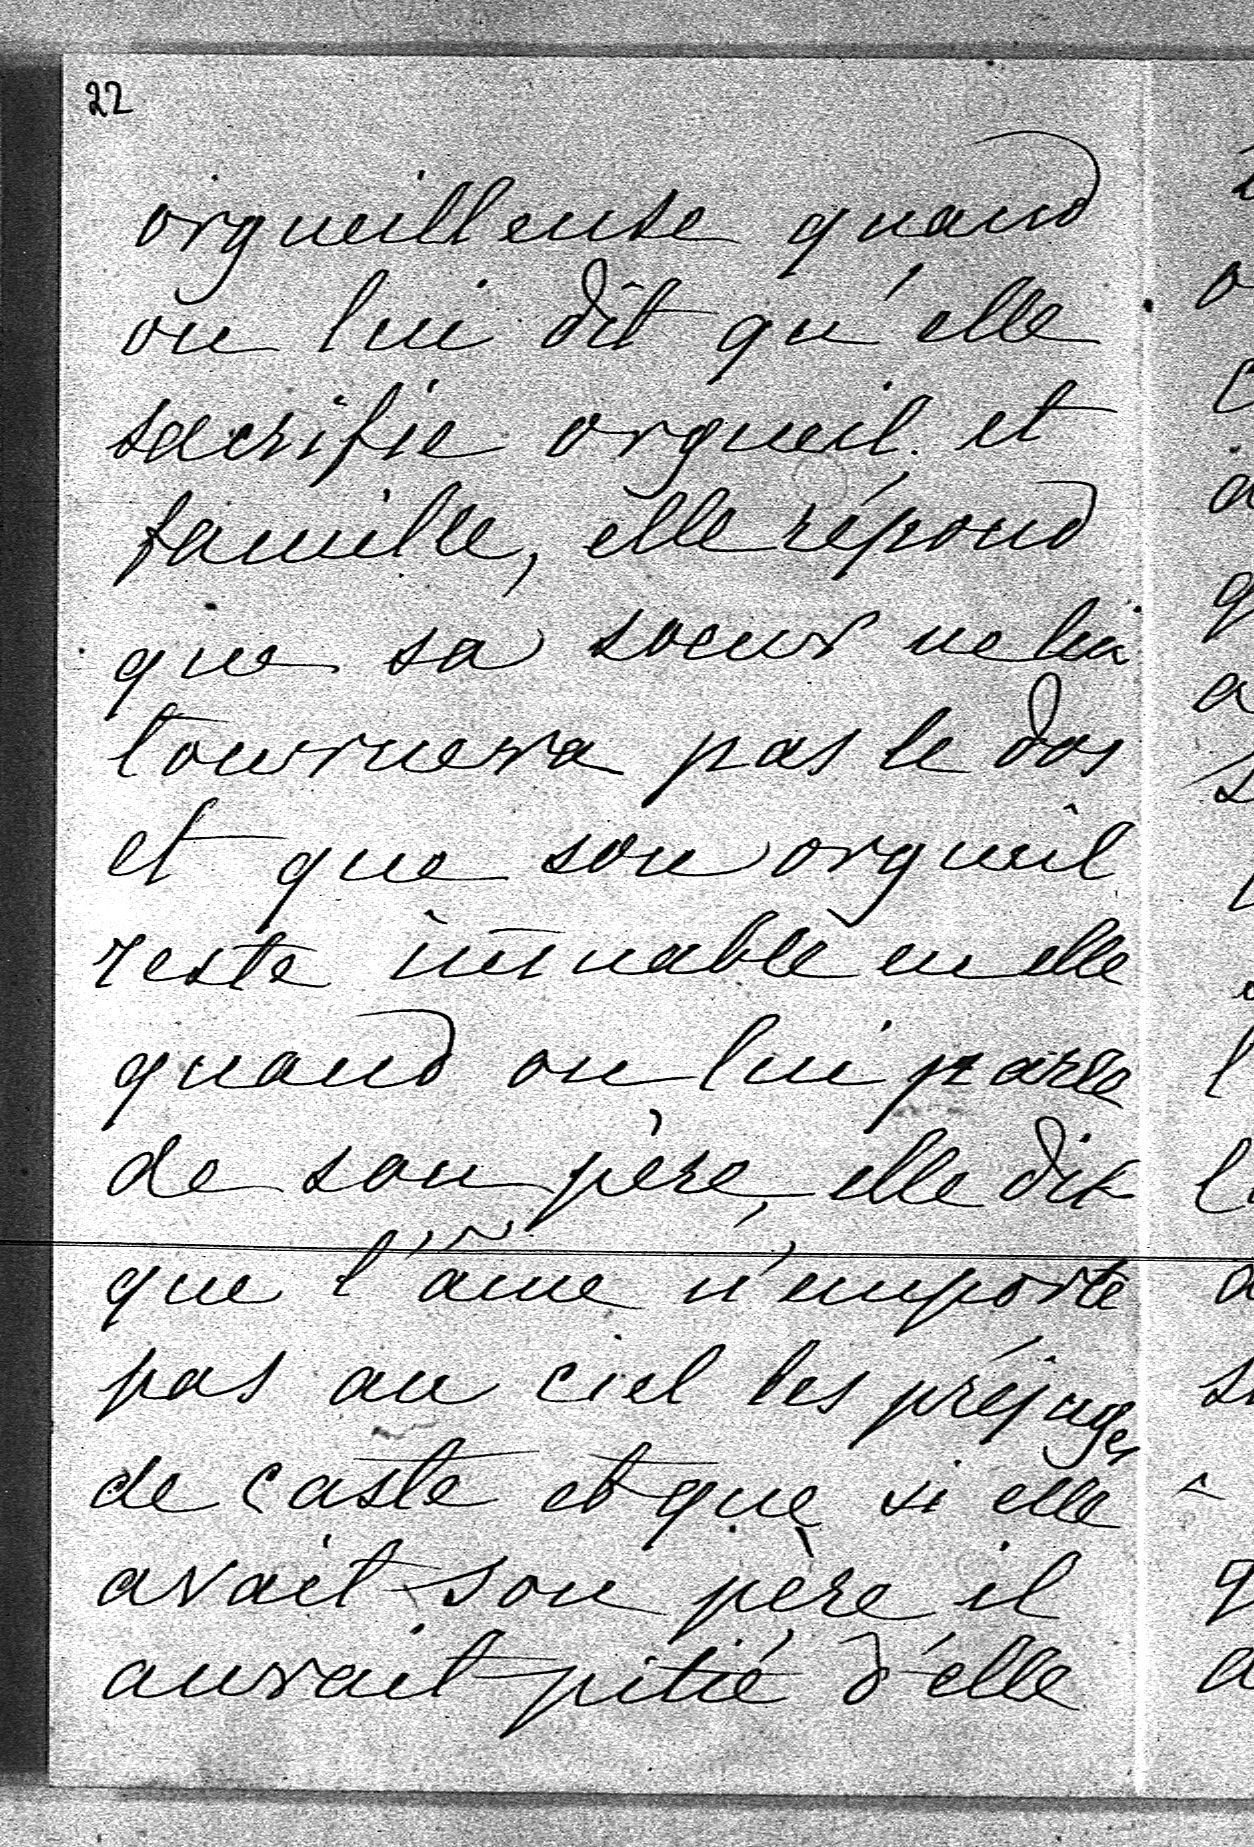 22
orgueilleuse quand
on lui dit qu'elle
sacrifie orgueil et
famille, elle répond
que sa soeur ne lui
tournera pas le dos
et que son orgueil
reste en elle
quand on lui parle
de son père, elle dit
que l'âme n'emporte
pas au ciel les préjuges
de caste et que si elle
avait son père il
aurait pitié d'elle